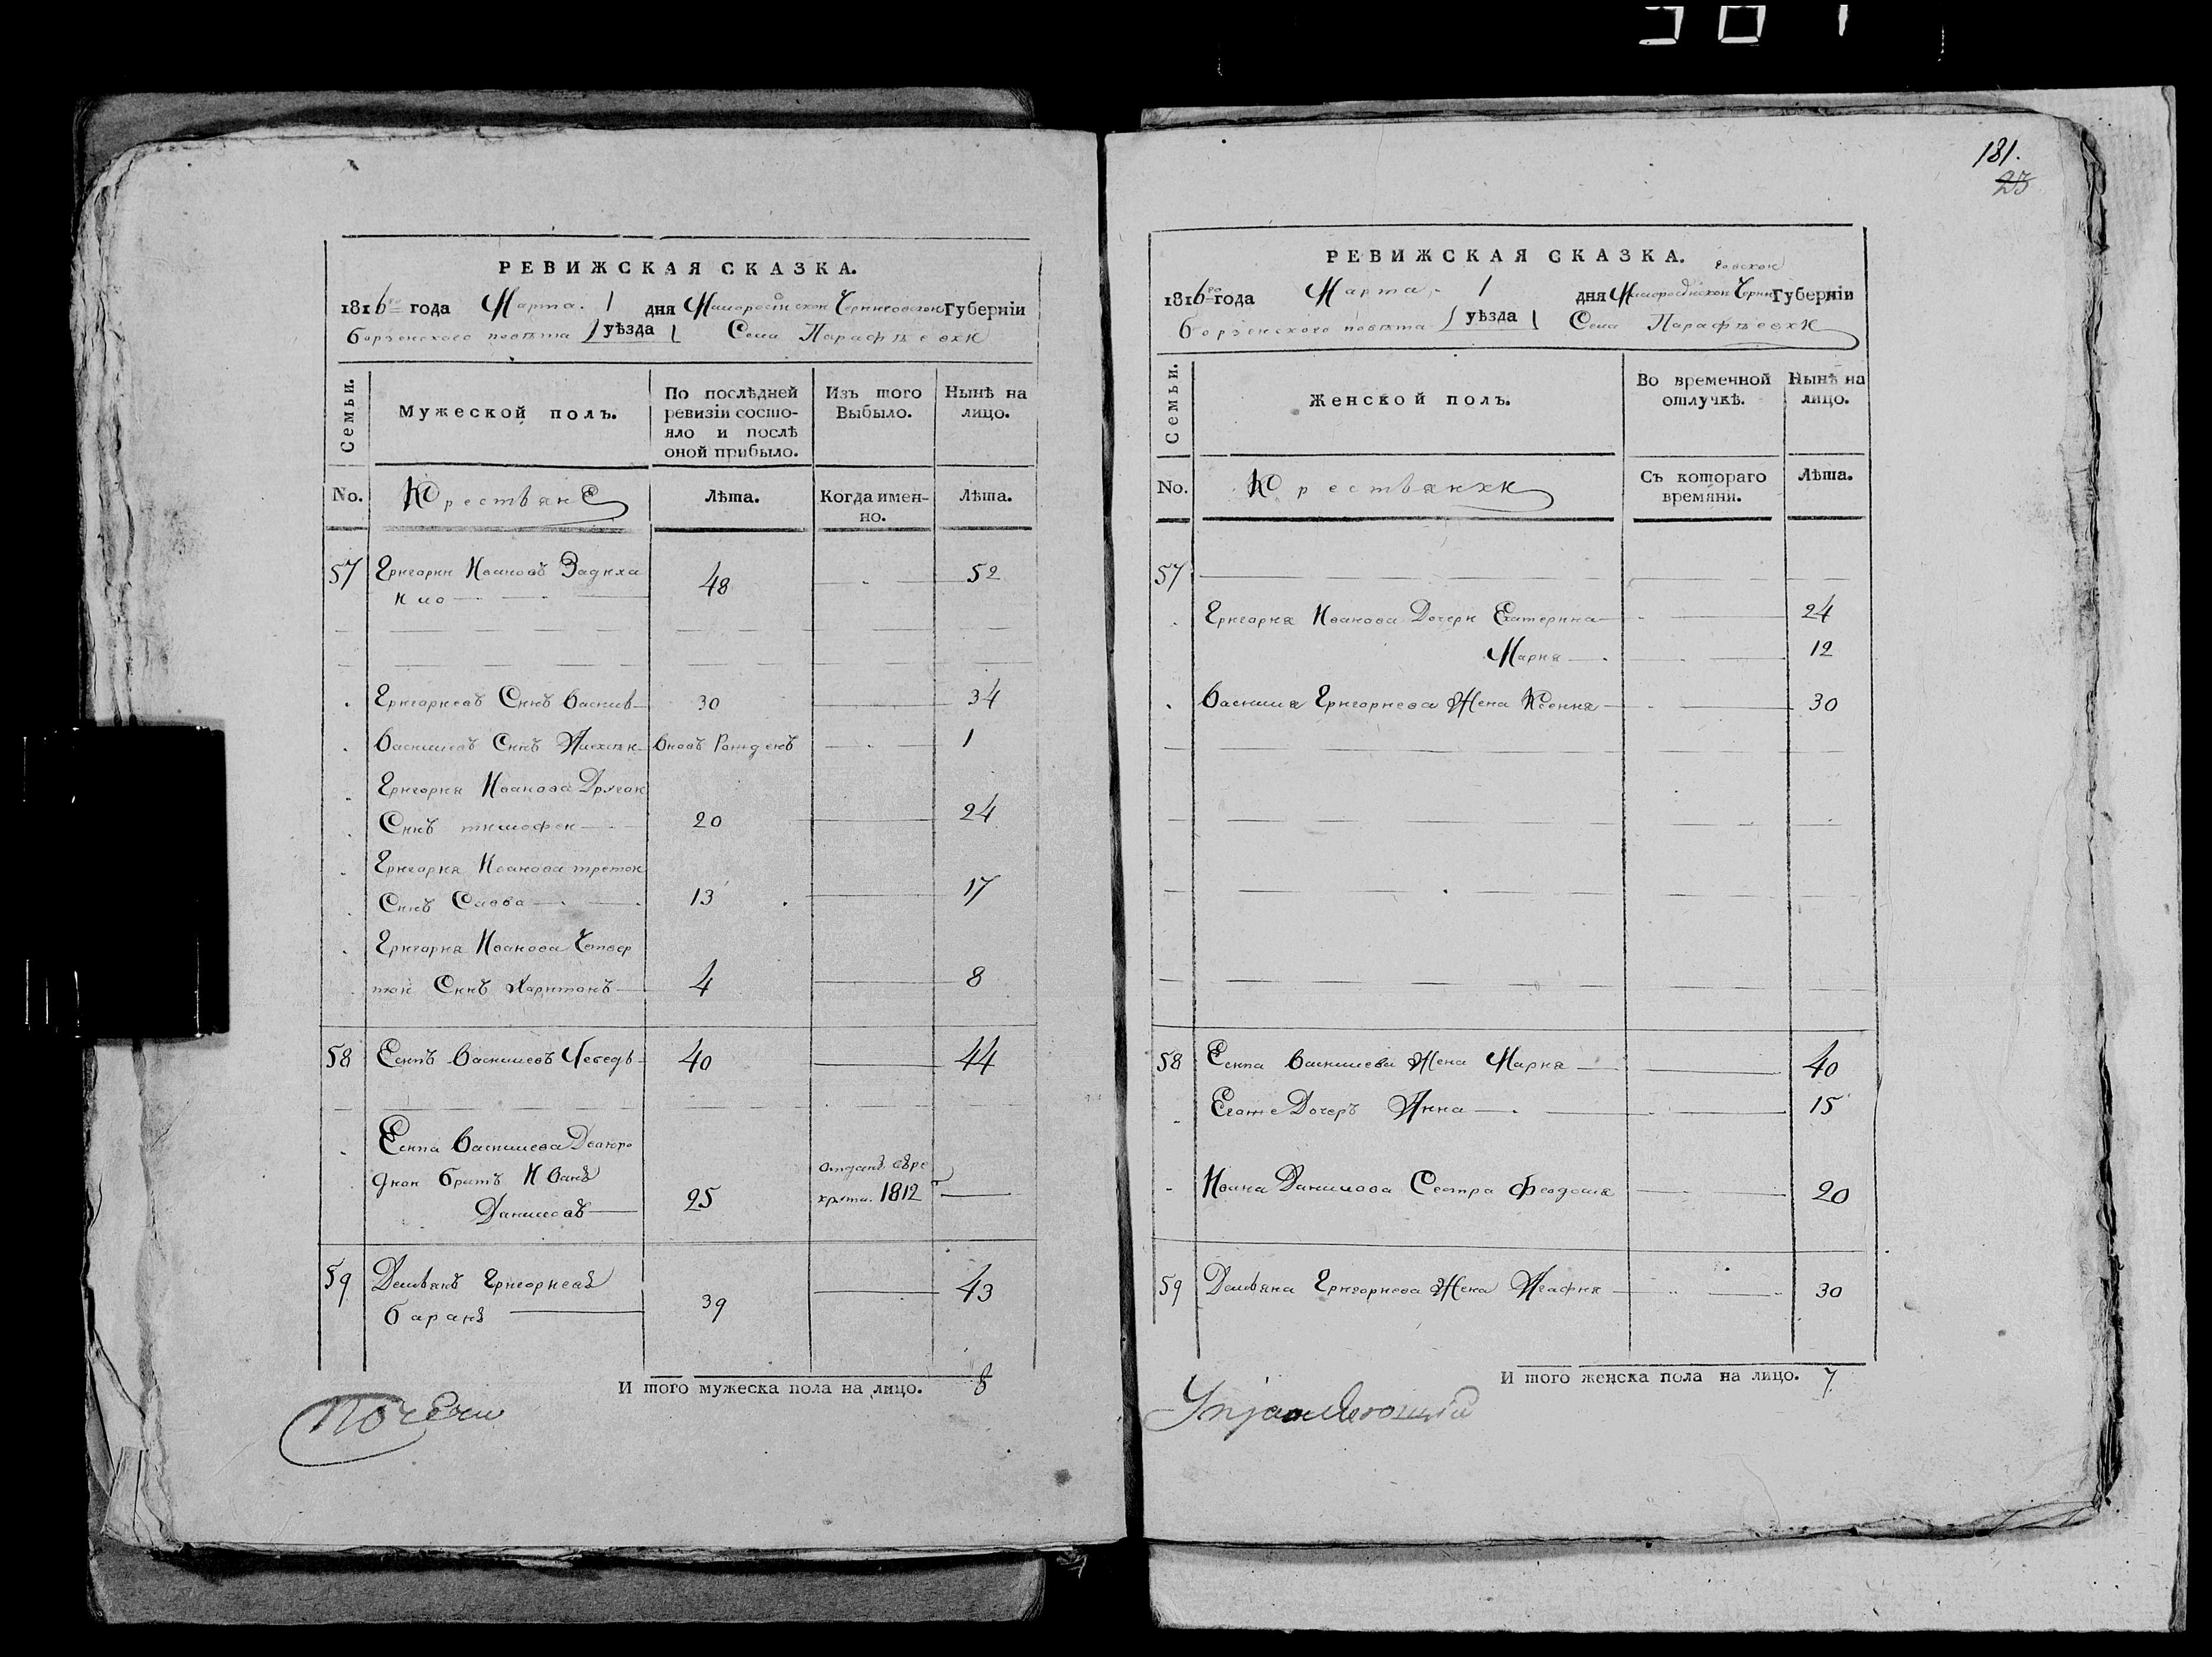 181.
23
РЕВИЖСКАЯ СКАЗКА.
1816го года Марта 1 дня Малоросійской Черниговской Губерніи
борзенского повѣта уѣзда Села Парафѣевки
Семьи.
Мужеской полъ.
По послѣдней ревизіи состо-
яло и послѣ
оной прибыло.
Изъ того
Выбыло.
Нынѣ на
лицо.
No.
Крестьяне
Лѣта.
Когда имен-
но.
Лѣта.
57 Григорий Ивановъ Задиха
ило 48 52
Григориевъ Синъ Василь 30 34
Василиевъ Синъ Алексѣй вновь Рожденъ 1
Григория Иванова Другой
Синъ тимофей 20 24
Григория Иванова третой
Синъ Савва 13 17
Григория Иванова Четвер
той Синъ Харитонъ 4 8
58 Есипъ Василиевъ 40 44
Есипа Василиева Двоюро
дной братъ Иванъ
Данилов 25 отданъ вре
крты. 1812
59 Демьянъ Григориевъ
баранъ 39 43
И того мужеска пола на лицо. 8
РЕВИЖСКАЯ СКАЗКА.
1816го года Марта 1 дня Малоросійской Черни
говской Губерніи
борзенского повѣта уѣзда Села Парафѣевки
Семьи.
Женской полъ.
Во временной
отлучкѣ.
Нынѣ на
лицо.
No.
Крестьянки
Съ котораго
времяни.
Лѣта.
57
Григория Иванова Дочери Екатерина 24
Мария 12
Василия Григориева Жена Ксения 30
58 Есипа Василиева Жена Мария 40
Егоже Дочеръ Анна 15
Ивана Данилова Сестра Феодосия 20
59 Демьяна Григориева Жена Агафия 30
И того женска пола на лицо. 7